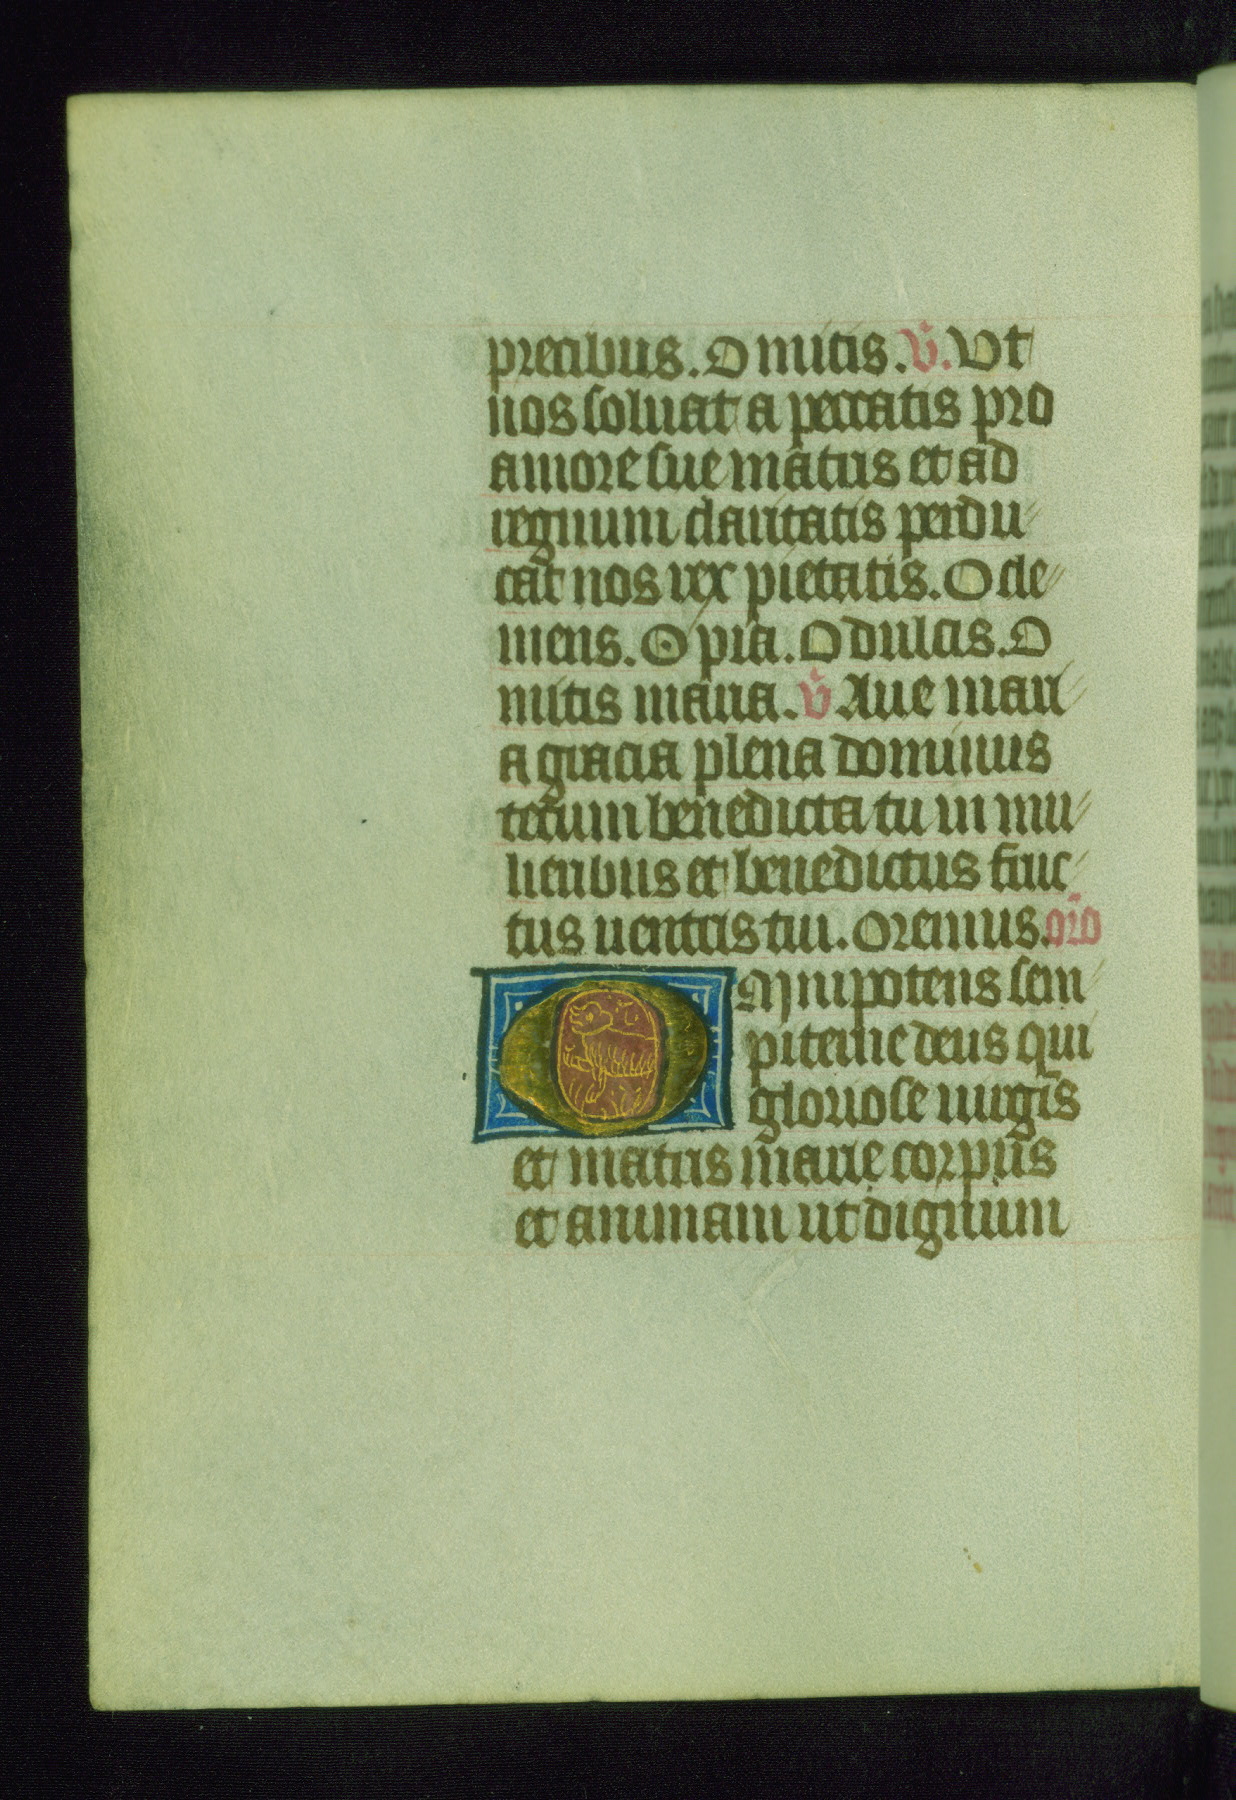 precibus. O mitis. v̄. Vt
nos soluat a peccatis pro
amore sue mātris et ad
regnum claritatis perdu
cat nos rex pietatis. O cle
mens. O pia. O dulcis. O
mitis maria. v̄ Aue mari
a gracia plena dominus
tecum benedicta tu in mu
lieribus et benedictus fruc
tus uentris tui. Oremus. or̄o
Omnipotens sem
piterne deus qui
gloriose uirgīs
et matris marie corpus
et animam ut dignum